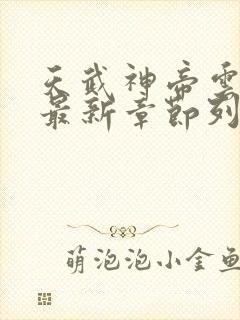 天武神帝雲
最新章節列
萌泡泡小金魚